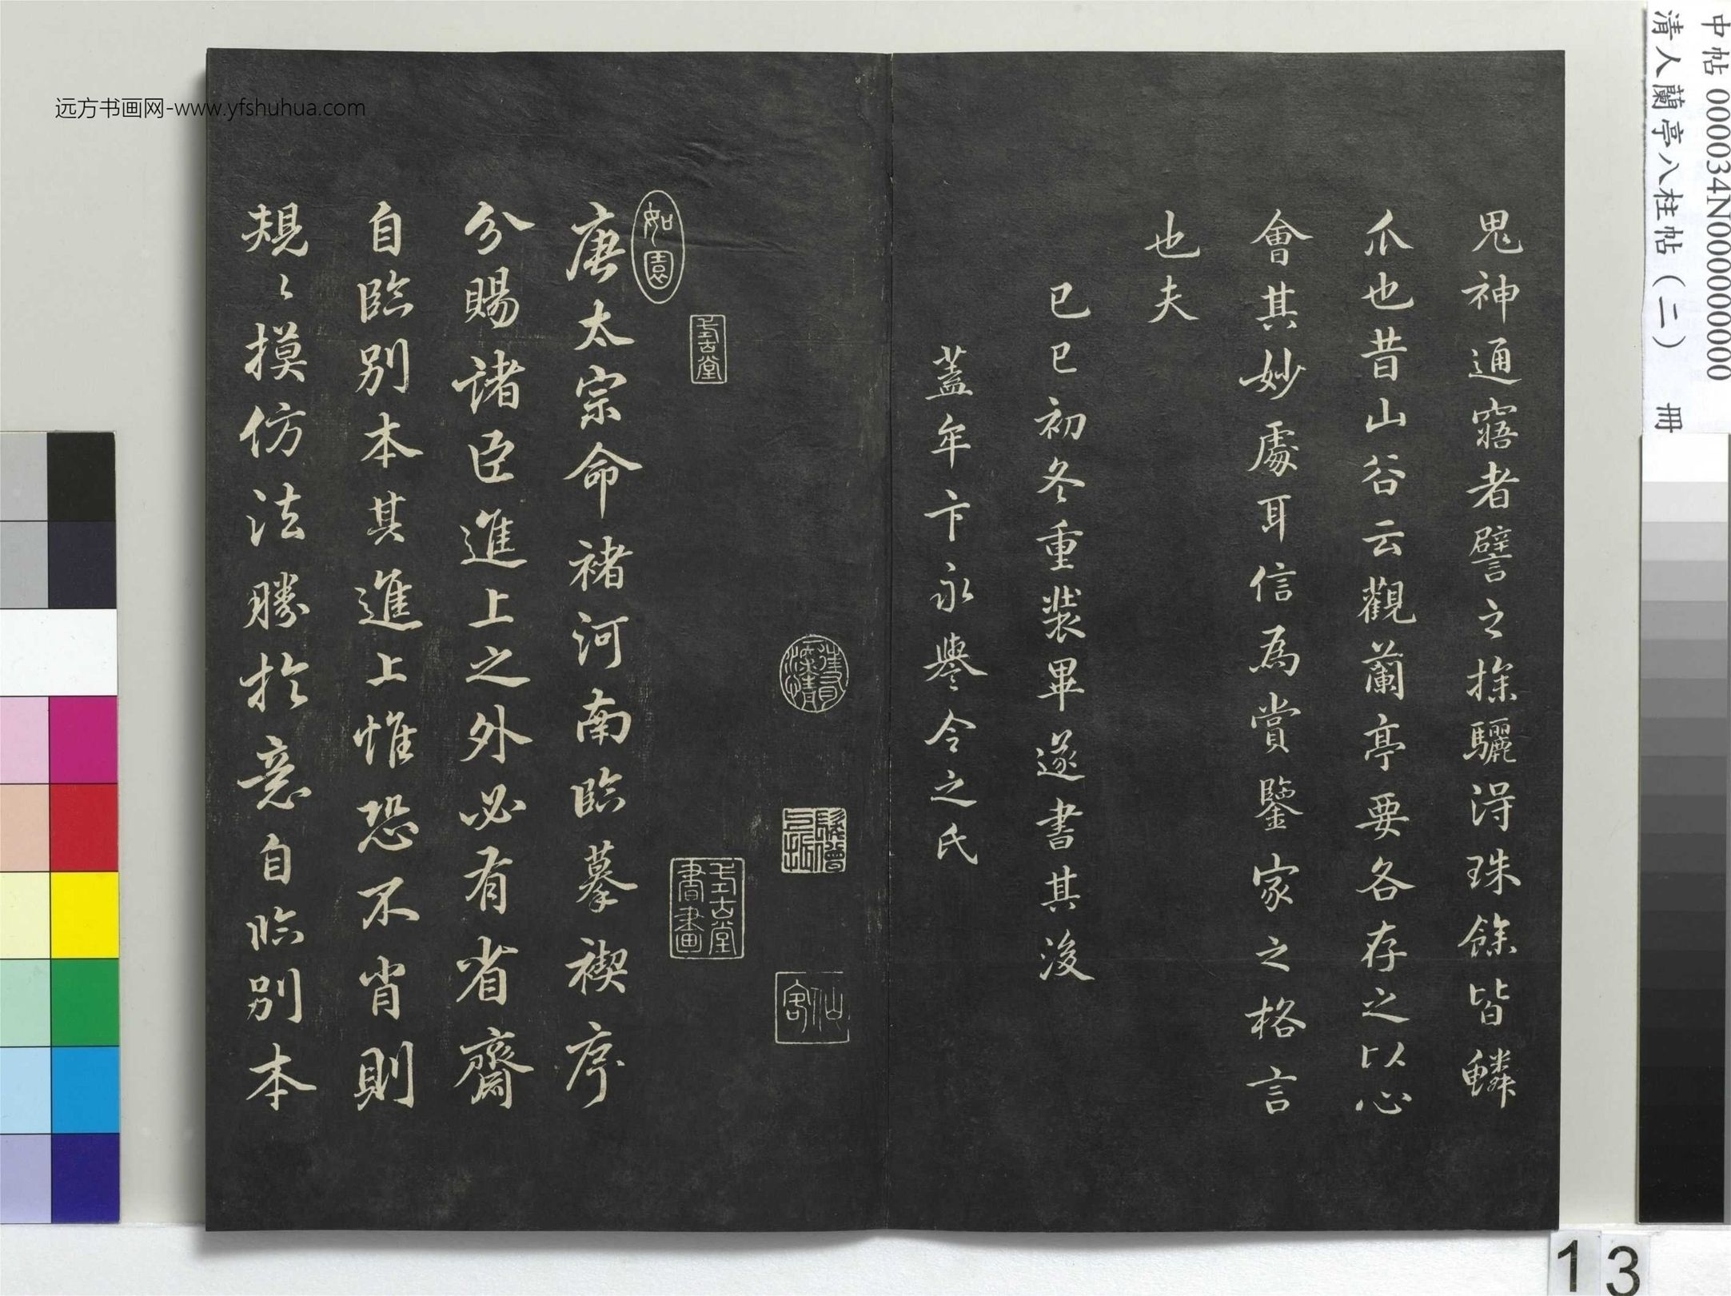 鬼神通寤者譬之探驪得珠餘皆鱗
爪也昔山谷云觀蘭亭要各存之以心
會其妙處耳信為賞鑒家之格言
也夫
己巳初冬重裝畢遂書其後
蓋牟卞永譽令之氏
仙客
式古堂書畫
式古堂
如園
唐太宗命褚河南臨摹禊序
分賜諸臣進上之外必有省齋
自臨別本其進上惟恐不肖則
規〻摸仿法勝於意自臨別本
中帖 000034N000000000
清人蘭亭八柱帖(二) 冊
远方书画网-www.yfshuhua.com
13